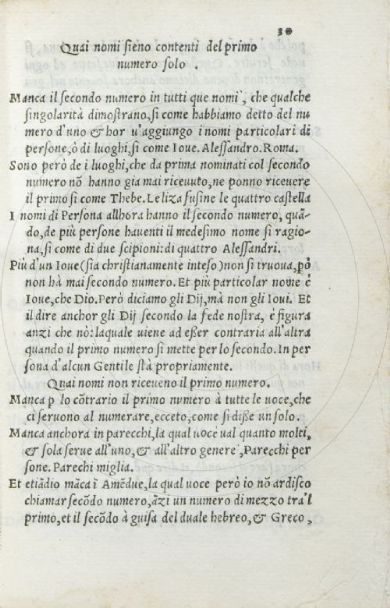 30
Quai nomi ſieno contenti del primo
numero ſolo .
Manca il ſecondo numero in tutti que nomi , che qualche
ſingolarità dimoſtrano, ſi come habbiamo detto del nu
mero d'uno & hor u'aggiungo i nomi particolari di
perſone, ò di luoghi, ſi come ſi Ioue. Aleſſandro. Roma.
Sono però de i luoghi, che da prima nominati col ſecondo
numero nõ hanno gia mai riceuuto, ne ponno riceuere
il primo ſi come Thebe. Le liza fuſine le quattro caſtella
I nomi di Perſona allhora hanno il ſecondo numero, quã-
do, de più perſone hauenti il medeſimo nome ſi ragio-
na, ſi come di due ſcipioni: di quattro Aleſſandri.
Più d'un Ioue (ſia chriſtianamente inteſo) non ſi truoua, ꝑò
non hà mai ſecondo numero. Et più particolar nome è
Ioue, che Dio. Però diciamo gli Dij, mà non gli Ioui. Et
il dire anchor gli Dij ſecondo la fede noſtra, è figura
anzi che nò: laquale uiene ad eßer contraria all'altra
quando il primo numero ſi mette per lo ſecondo. In per
ſona d'alcun Gentile ſtà propriamente.
Quai nomi non riceueno il primo numero.
Manca ꝑ lo cõtrario il primo numero à tutte le uoce, che
ci ſeruono al numerare, ecceto, come ſi diße un ſolo.
Manca anchora in parecchi, la qual uoce ual quanto molti,
& ſola ſerue all'uno, & all'altro genere , Parecchi per
ſone. Parechi miglia.
Et etiãdio mãca ì Amẽdue, la qual uoce però io nõ ardiſco
chiamar ſecõdo numero, ãzi un numero di mezzo tra'l
primo, et il ſecõdo à guiſa del duale hebreo, & Greco ,